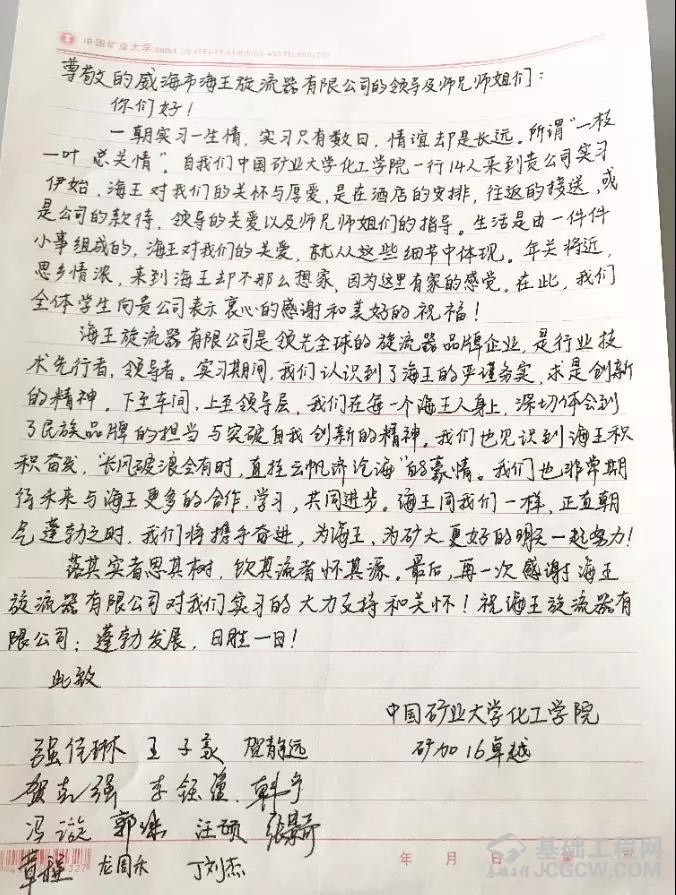 中国矿业大学 CHINA UNIVERSITY OF MINING AND TECHNOLOGY
尊敬的威海市海王旋流器有限公司的领导及师兄师姐们：
你们好！
一朝实习一生情，实习只有数日，情谊却是长远。所谓“一枝
一叶总关情”。自我们中国矿业大学化工学院一行14人来到贵公司实习
伊始，海王对我们的关怀与厚爱，是在酒店的安排，往返的接送，或
是公司的款待，领导的关爱以及师兄师姐们的指导。生活是由一件件
小事组成的，海王对我们的关爱，就从这些细节中体现。年关将近，
思乡情浓，来到海王却不那么想家，因为这里有家的感觉。在此，我们
全体学生向贵公司表示衷心的感谢和美好的祝福！
海王旋流器有限公司是领先全球的旋流器品牌企业，是行业技
术先行者，领导者。实习期间，我们认识到了海王的严谨务实，求是创新
的精神。下至车间，上至领导层，我们在每一个海王人身上，深切体会到
了民族品牌的担当与突破自我创新的精神。我们也见识到海王积
积奋发，“长风破浪会有时，直挂云帆济沧海”的豪情。我们也非常期
待未来与海王更多的合作，学习，共同进步。海王同我们一样，正直朝
气蓬勃之时，我们将携手奋进，为海王，为矿大更好的明天一起努力！
落其实者思其树，饮其流者怀其源。最后，再一次感谢海王
旋流器有限公司对我们实习的大力支持和关怀！祝海王旋流器有
限公司：蓬勃发展，日胜一日！
此致
中国矿业大学化工学院
矿加16卓越
强佳琳 王子豪 贺静远
贺克强 李钰 韩宁
冯璇 郭 汪硕 张景奇
章程 龙周禾 丁刘杰
年 月 日 第 页
基础工程网
JCGCW.COM